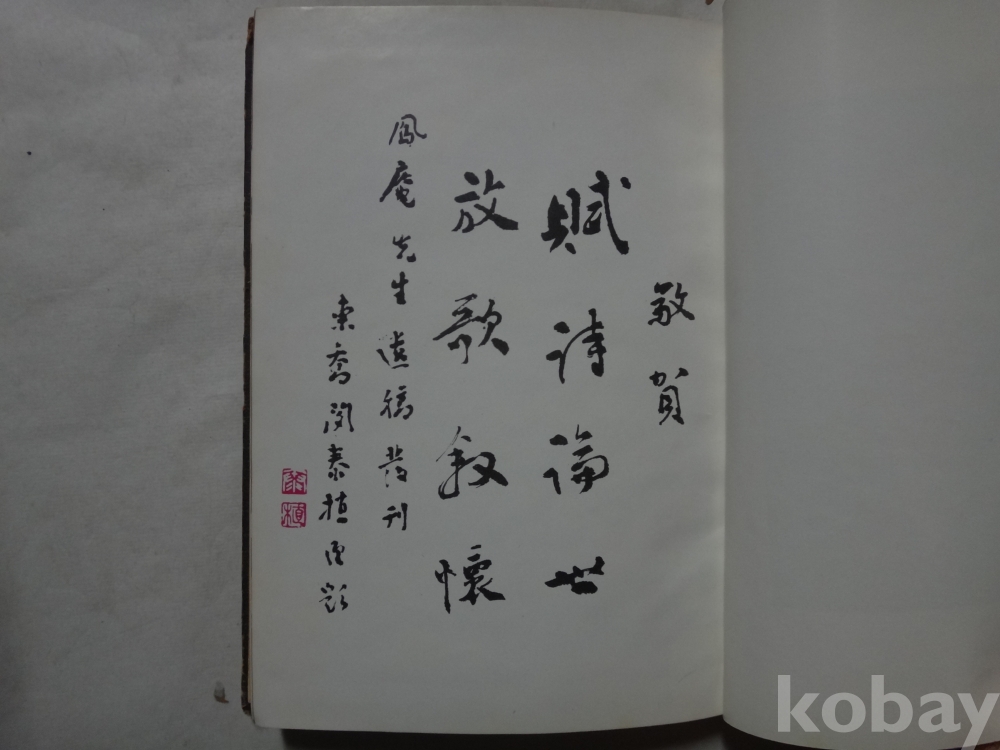 敬賀
賦詩論世
放歌敍懷
鳳庵先生遺稿發刊
東喬閔泰植題
泰植
kobay